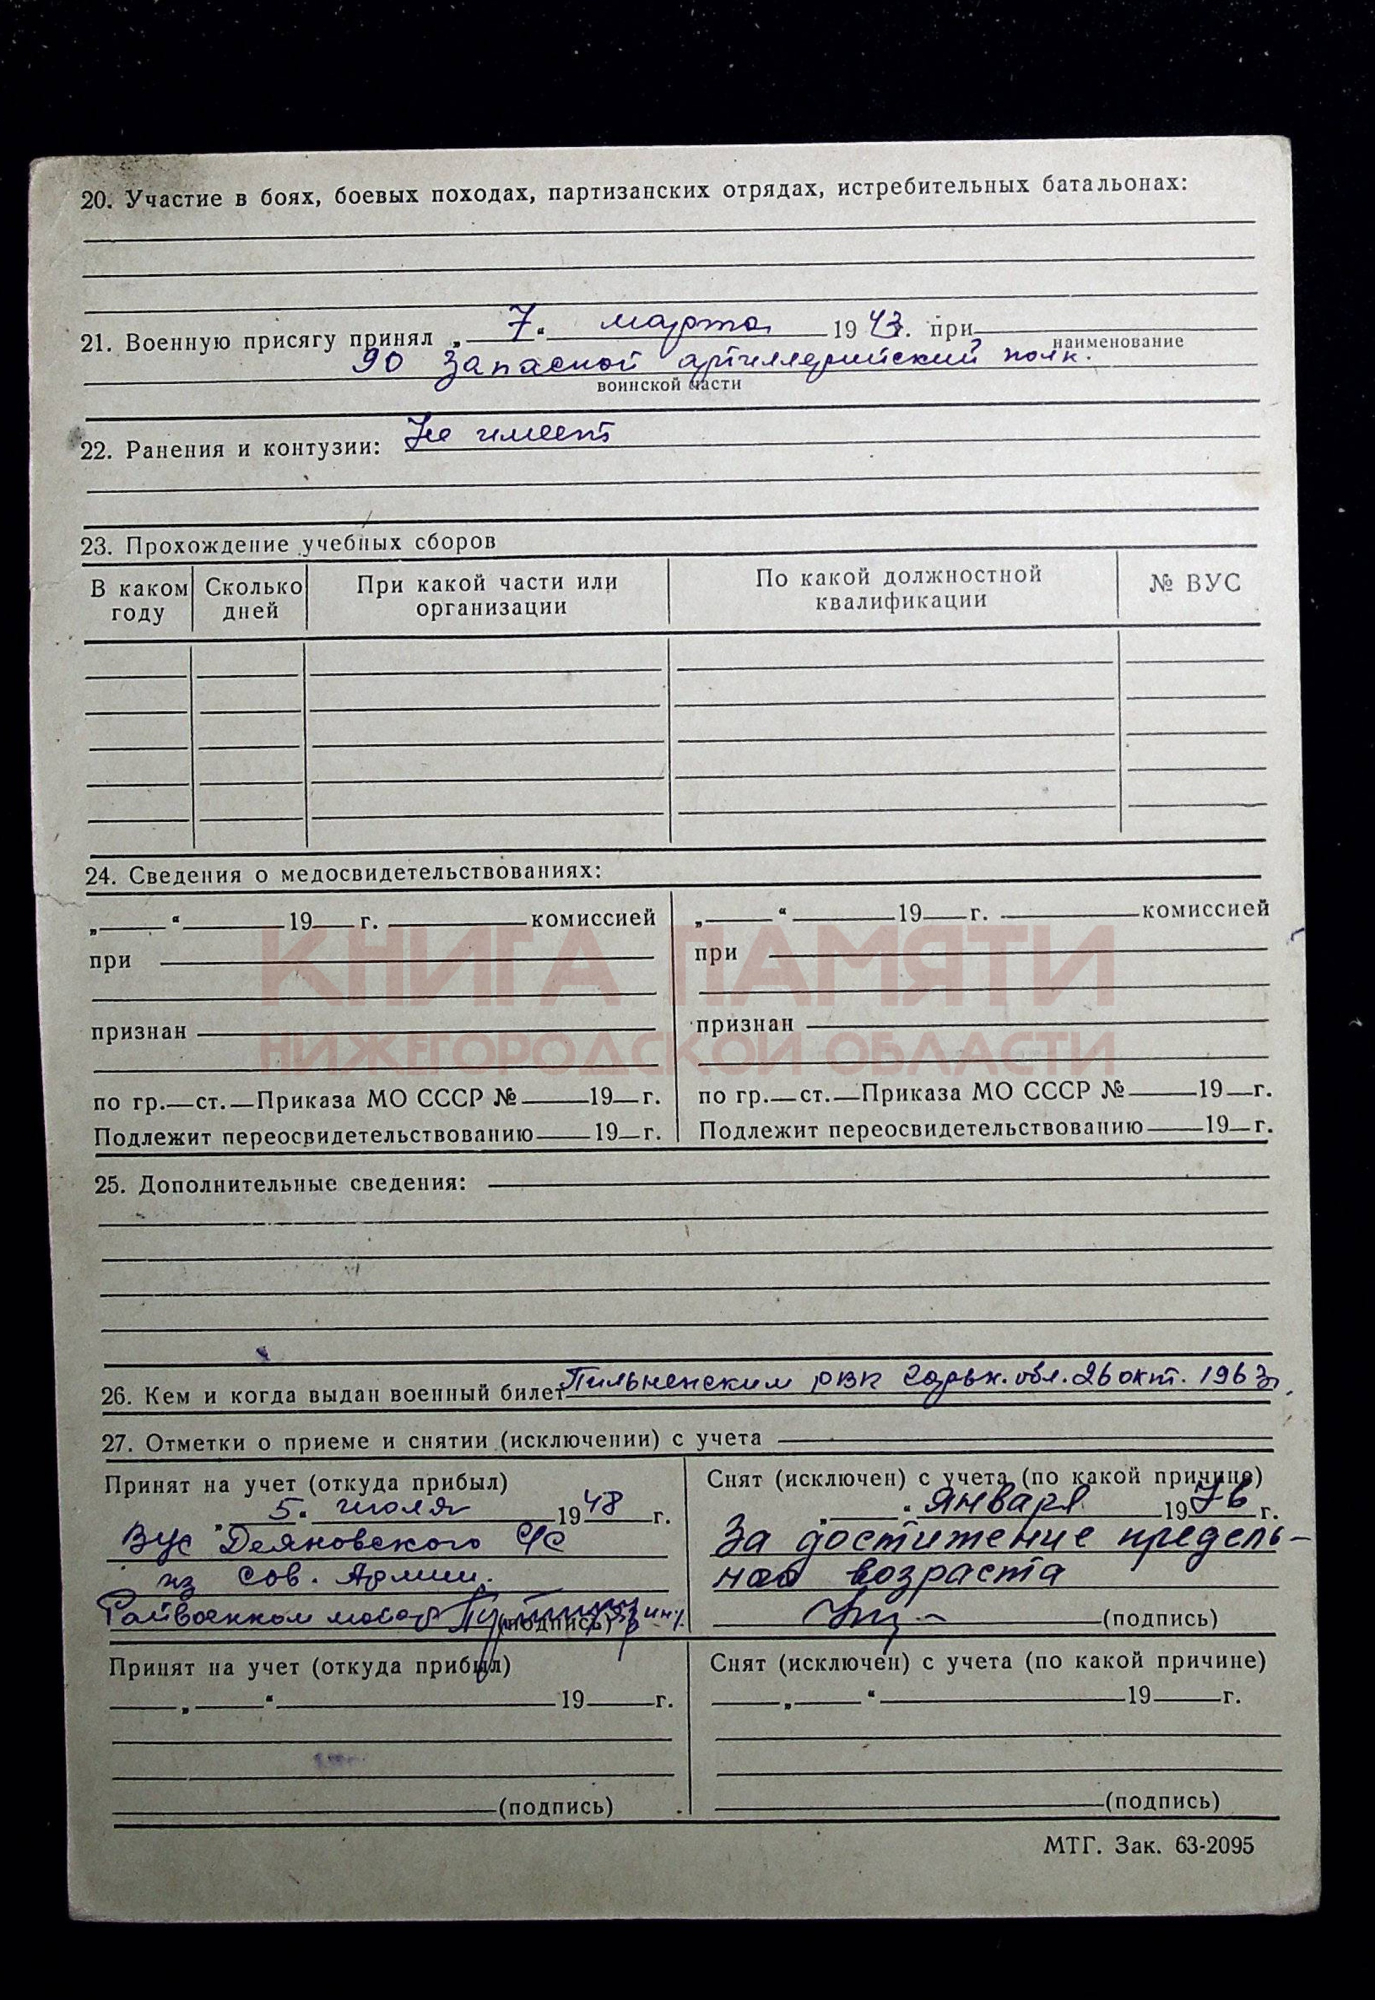 20. Участие в боях, боевых походах, партизанских отрядах, истребительных батальонах:
21. Военную присягу принял „ 7 “ марта 1943г. при
наименование
90 Запасной артиллерийский полк.
воинской части
22. Ранения и контузии: Не имеет
23. Прохождение учебных сборов
В каком году Сколько дней При какой части или организации По какой должностной квалификации № ВУС
24. Сведения о медосвидетельствованиях:
„ “ 19 г. комиссией „ “ 19 г. комиссией
при при
КНИГА ПАМЯТИ
признан признан
НИЖЕГОРОДСКОЙ ОБЛАСТИ
по гр. ст. Приказа МО СССР № 19 г. по гр. ст. Приказа МО СССР № 19 г.
Подлежит переосвидетельствованию 19 г. Подлежит переосвидетельствованию 19 г.
25. Дополнительные сведения:
26. Кем и когда выдан военный билет Пильненским РВК Горьк. обл. 26 окт. 1963г.
27. Отметки о приеме и снятии (исключении) с учета
Принят на учет (откуда прибыл) Снят (исключен) с учета (по какой причине)
„ 5 “ июля 1948 г. „ “ января 1976 г.
ВУС Деяновского С/С За достижение предель-
из Сов. Армии. ного возраста
Райвоенком майор (подпись) (подпись)
Принят на учет (откуда прибыл) Снят (исключен) с учета (по какой причине)
„ “ 19 г. „ “ 19 г.
(подпись) (подпись)
МТГ. Зак. 63-2095